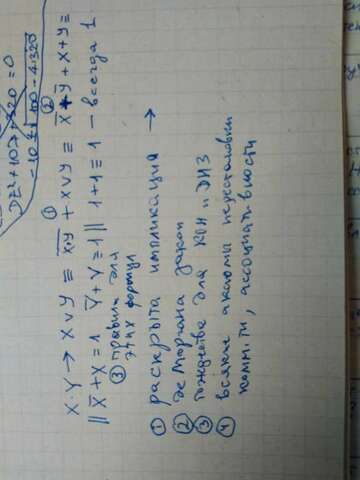 x² + 10x + 320 = 0
X·Y → X ∨ Y ≡ ① \overline{X·Y} + X ∨ Y ≡ ② \overline{X} + \overline{Y} + X + Y ≡
|| \overline{X} + X = 1 \overline{Y} + Y = 1 || 1 + 1 ≡ 1 — всегда 1
③ правила для
этих формул
① раскрыта импликация →
② де Моргана закон
③ тождества для КОН и ДИЗ
④ всякие аксиомы перестановки
коммути, ассоциативности